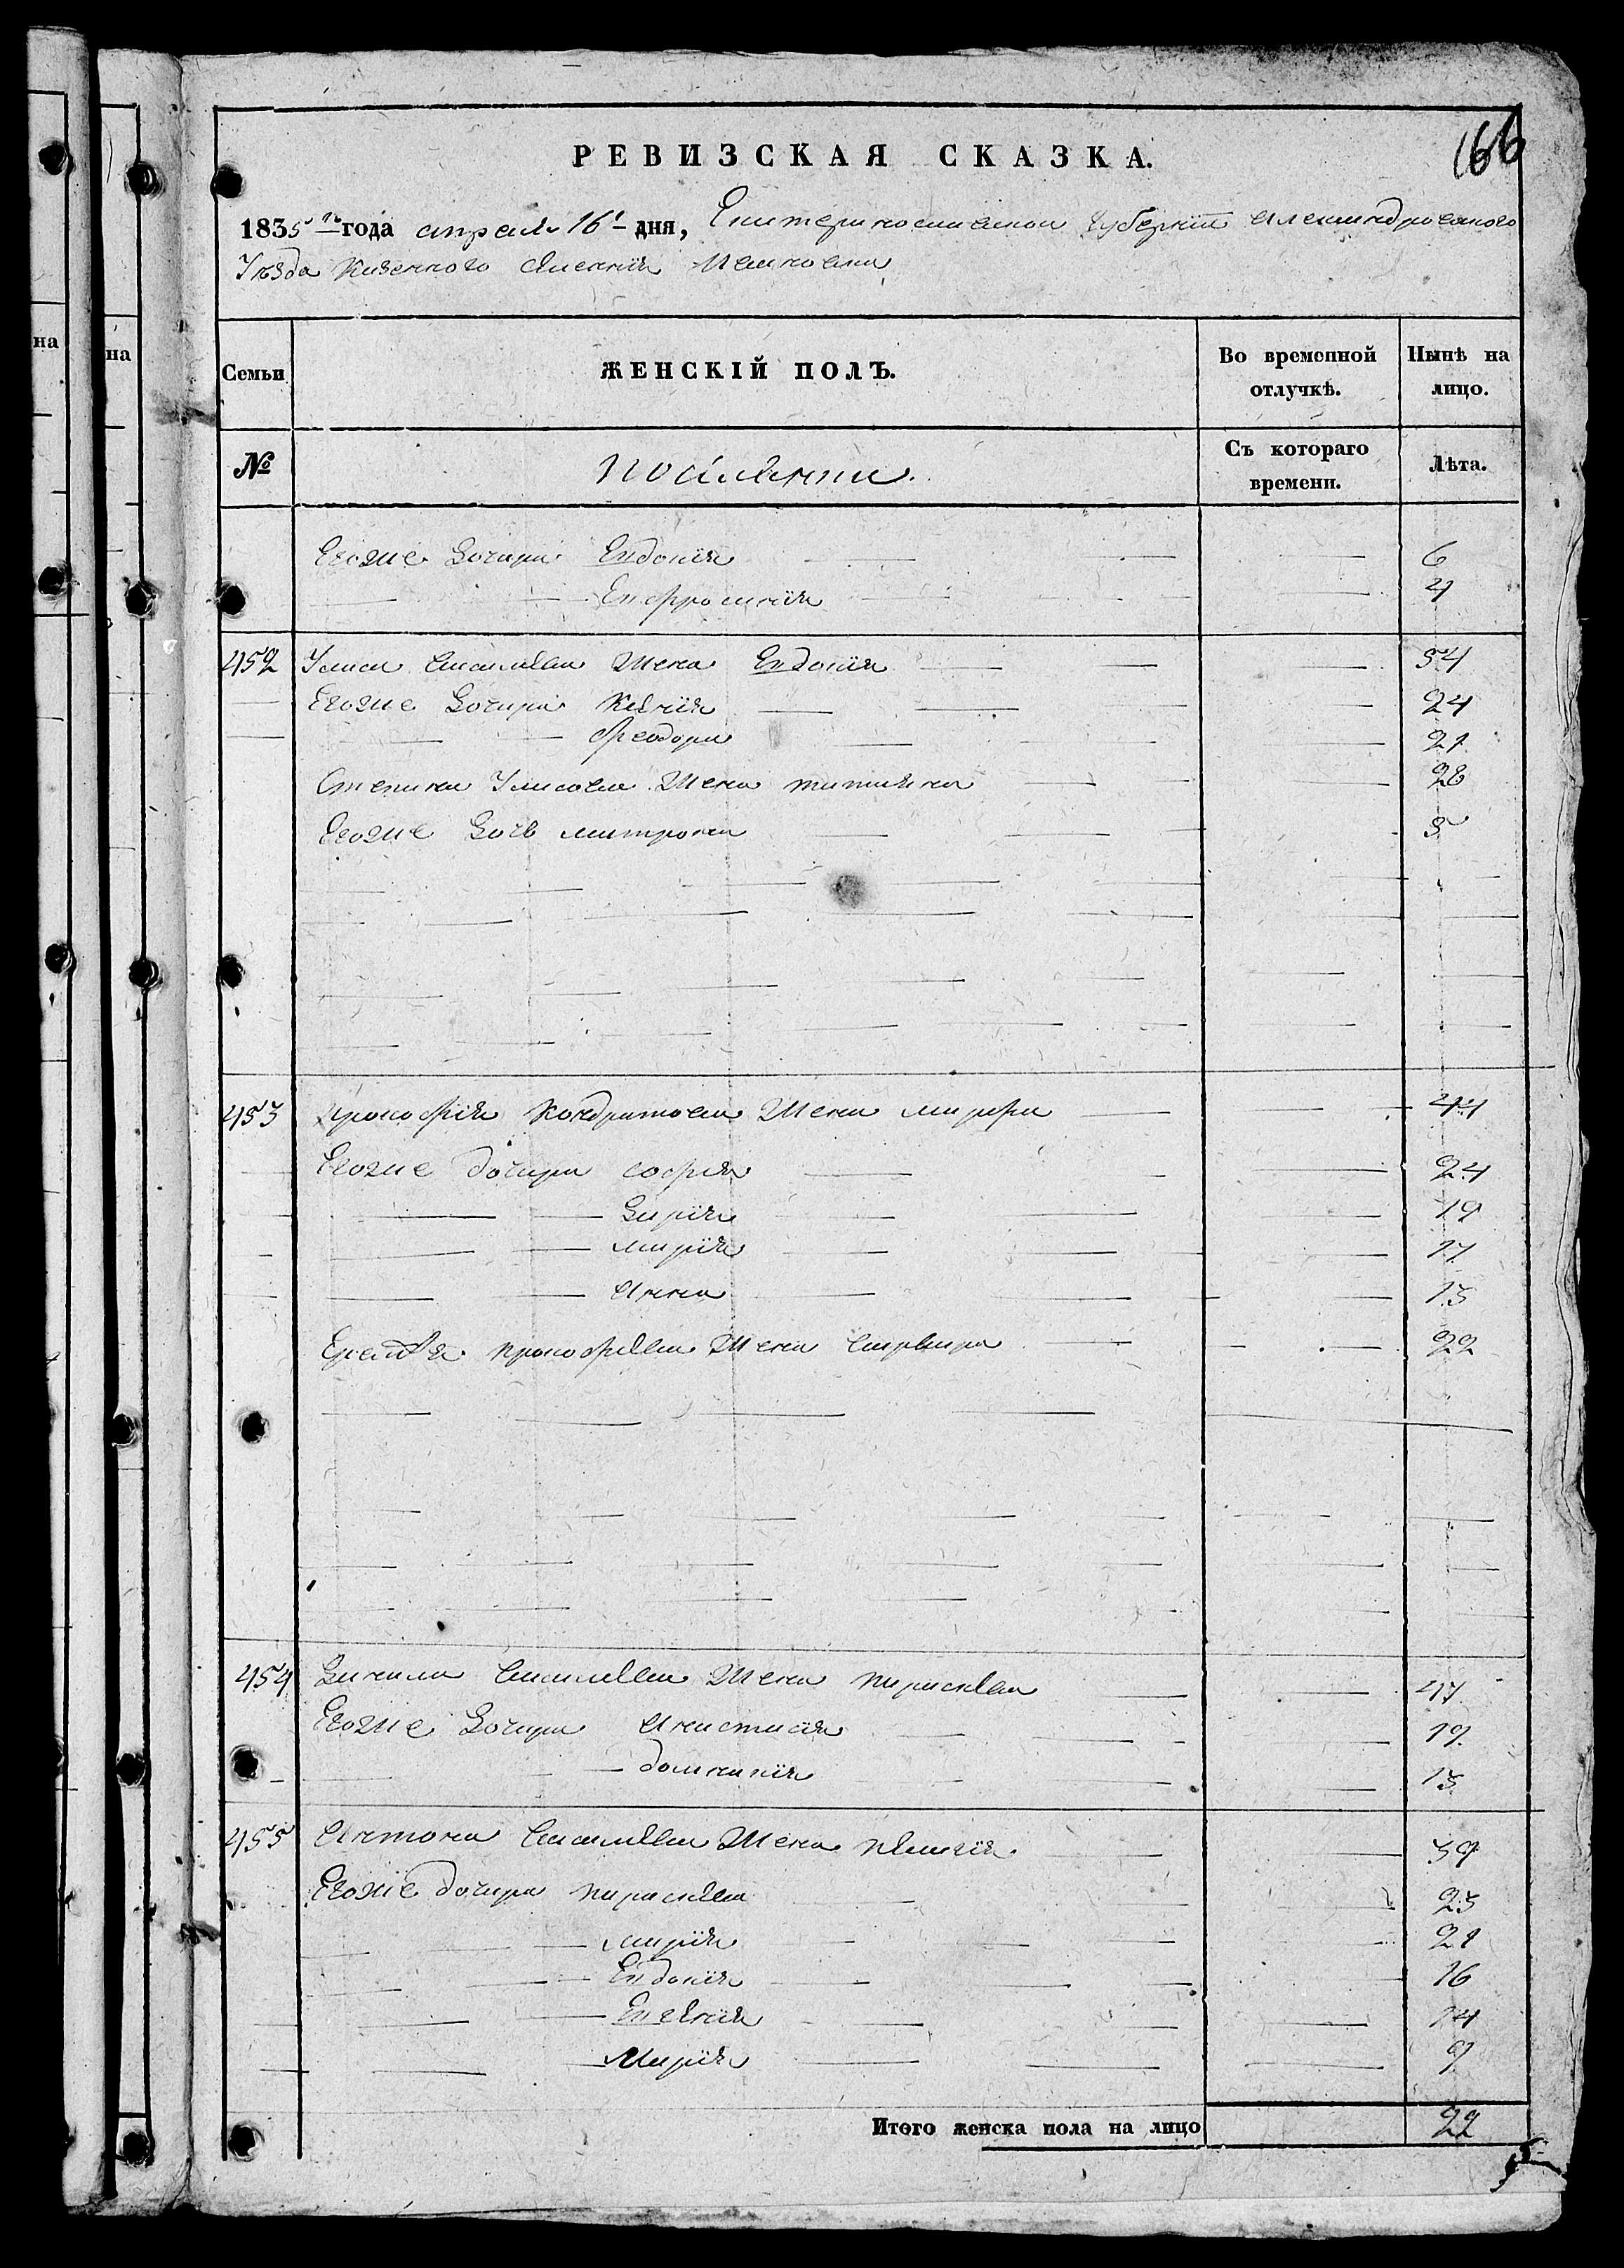 166
РЕВИЗСКАЯ СКАЗКА.
1835 года апреля 16 дня, Екатеринославской Губернїи Александровского
Уѣзда Казенного Имения
Семьи
ЖЕНСКІЙ ПОЛЪ.
Во временной отлучкѣ.
Нынѣ на лицо.
№
Съ котораго времени.
Лѣта.
Егоже Дочери Евдокия 6
Ефросиния 4
452 Василиева Жена Евдокия 54
Егоже Дочери Ксения 24
Феодора 21
Степана Жена татияна 28
Егоже Дочь матрона
453 прокофия Кондратова Жена марфа 44
Егоже дочери софия 24
Дария 19
мария 17
Анна 13
Еремея прокофиева Жена варвара 22
454 Данила Василиева Жена параскева 47
Егоже Дочери Анастасия 19
домникия 13
455 Антона Василиева Жена 39
Егоже дочери параскева 23
мария 21
Евдокия 16
Евгения 14
Мария 9
Итого женска пола на лицо 22
на
на